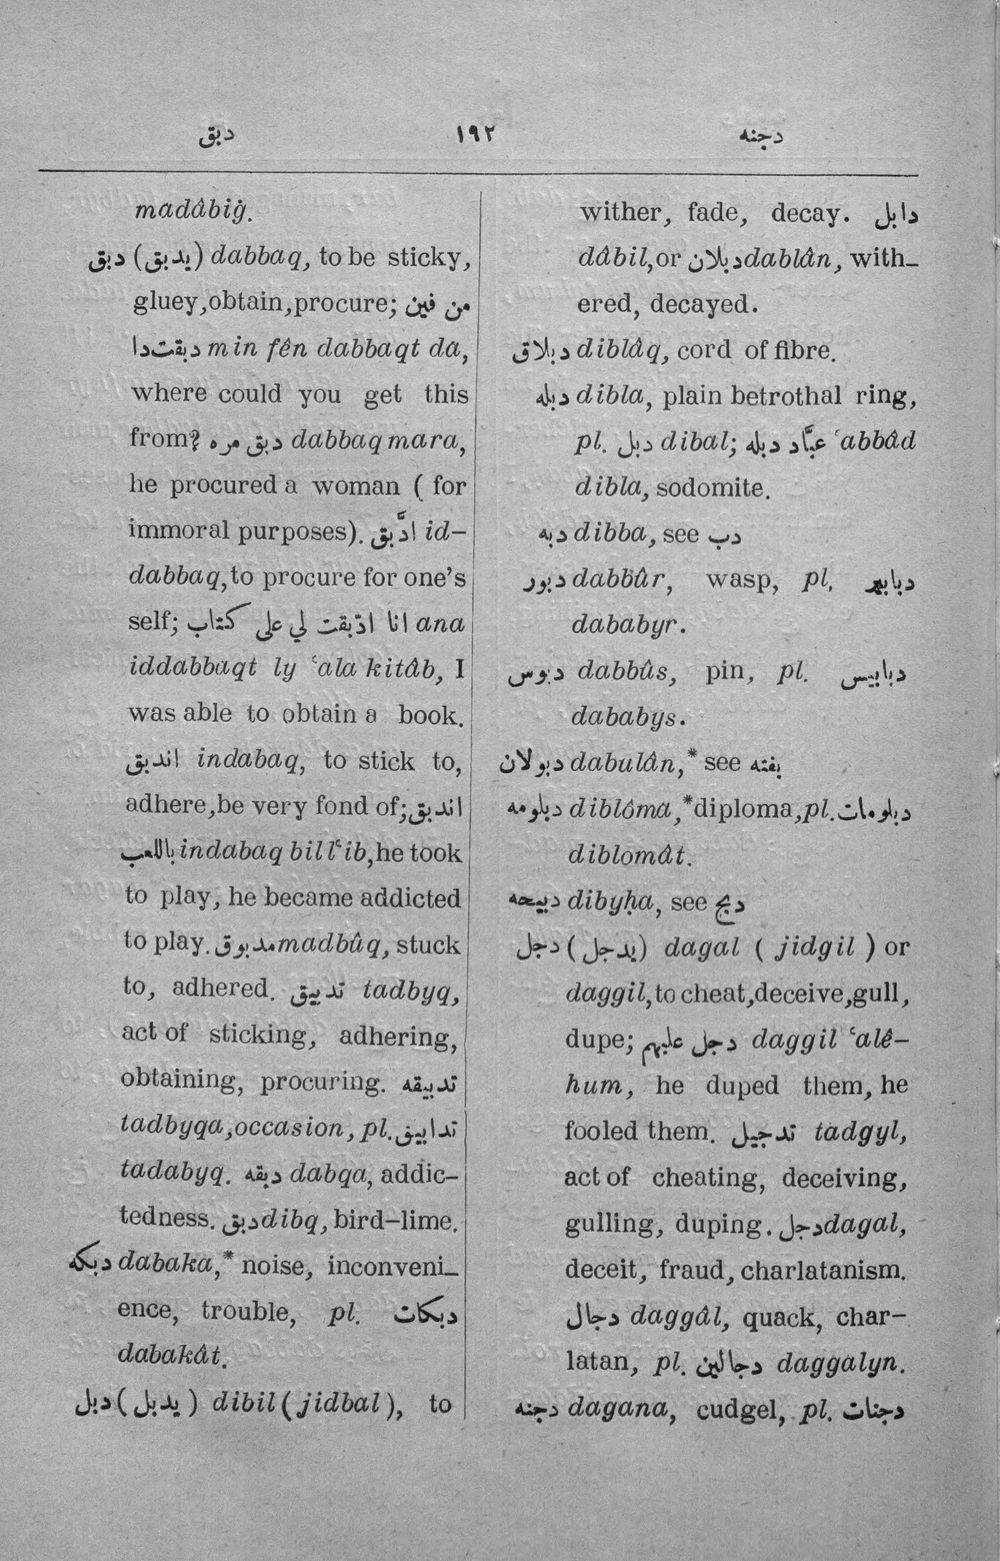 دبق ١٩٢ دجنه
madâbiġ.
دبق (يدبق) dabbaq, to be sticky,
gluey, obtain, procure; من فين
دبقت دا min fên dabbaqt da,
where could you get this
from? دبق مره dabbaq mara,
he procured a woman ( for
immoral purposes). ادَّبق id-
dabbaq, to procure for one's
self; انا ادّبقت لي على كتاب ana
iddabbaqt ly ʿala kitâb, I
was able to obtain a book.
اندبق indabaq, to stick to,
adhere, be very fond of; اندبق
باللعب indabaq bill'ib, he took
to play, he became addicted
to play. مدبوق madbûq, stuck
to, adhered. تدبيق tadbyq,
act of sticking, adhering,
obtaining, procuring. تدبيقه
tadbyqa, occasion, pl. تدابيق
tadabyq. دبقه dabqa, addic-
tedness. دبق dibq, bird-lime.
دبكه dabaka,* noise, inconveni-
ence, trouble, pl. دبكات
dabakât.
دبل (يدبل) dibil (jidbal), to
wither, fade, decay. دابل
dâbil, or دبلان dablân, with-
ered, decayed.
دبلاق diblâq, cord of fibre.
دبله dibla, plain betrothal ring,
pl. دبل dibal; عبّاد دبله ʿabbâd
dibla, sodomite.
دبه dibba, see دب
دبور dabbûr, wasp, pl. دبابير
dababyr.
دبوس dabbûs, pin, pl. دبابيس
dababys.
دبولان dabulân,* see بفته
دبلومه diblôma,* diploma, pl. دبلومات
diblomât.
دبيحه dibyḥa, see دبح
دجل (يدجل) dagal ( jidgil ) or
daggil, to cheat, deceive, gull,
dupe; دجل عليهم daggil ʿalê-
hum, he duped them, he
fooled them. تدجيل tadgyl,
act of cheating, deceiving,
gulling, duping. دجل dagal,
deceit, fraud, charlatanism.
دجال daggâl, quack, char-
latan, pl. دجالين daggalyn.
دجنه dagana, cudgel, pl. دجنات